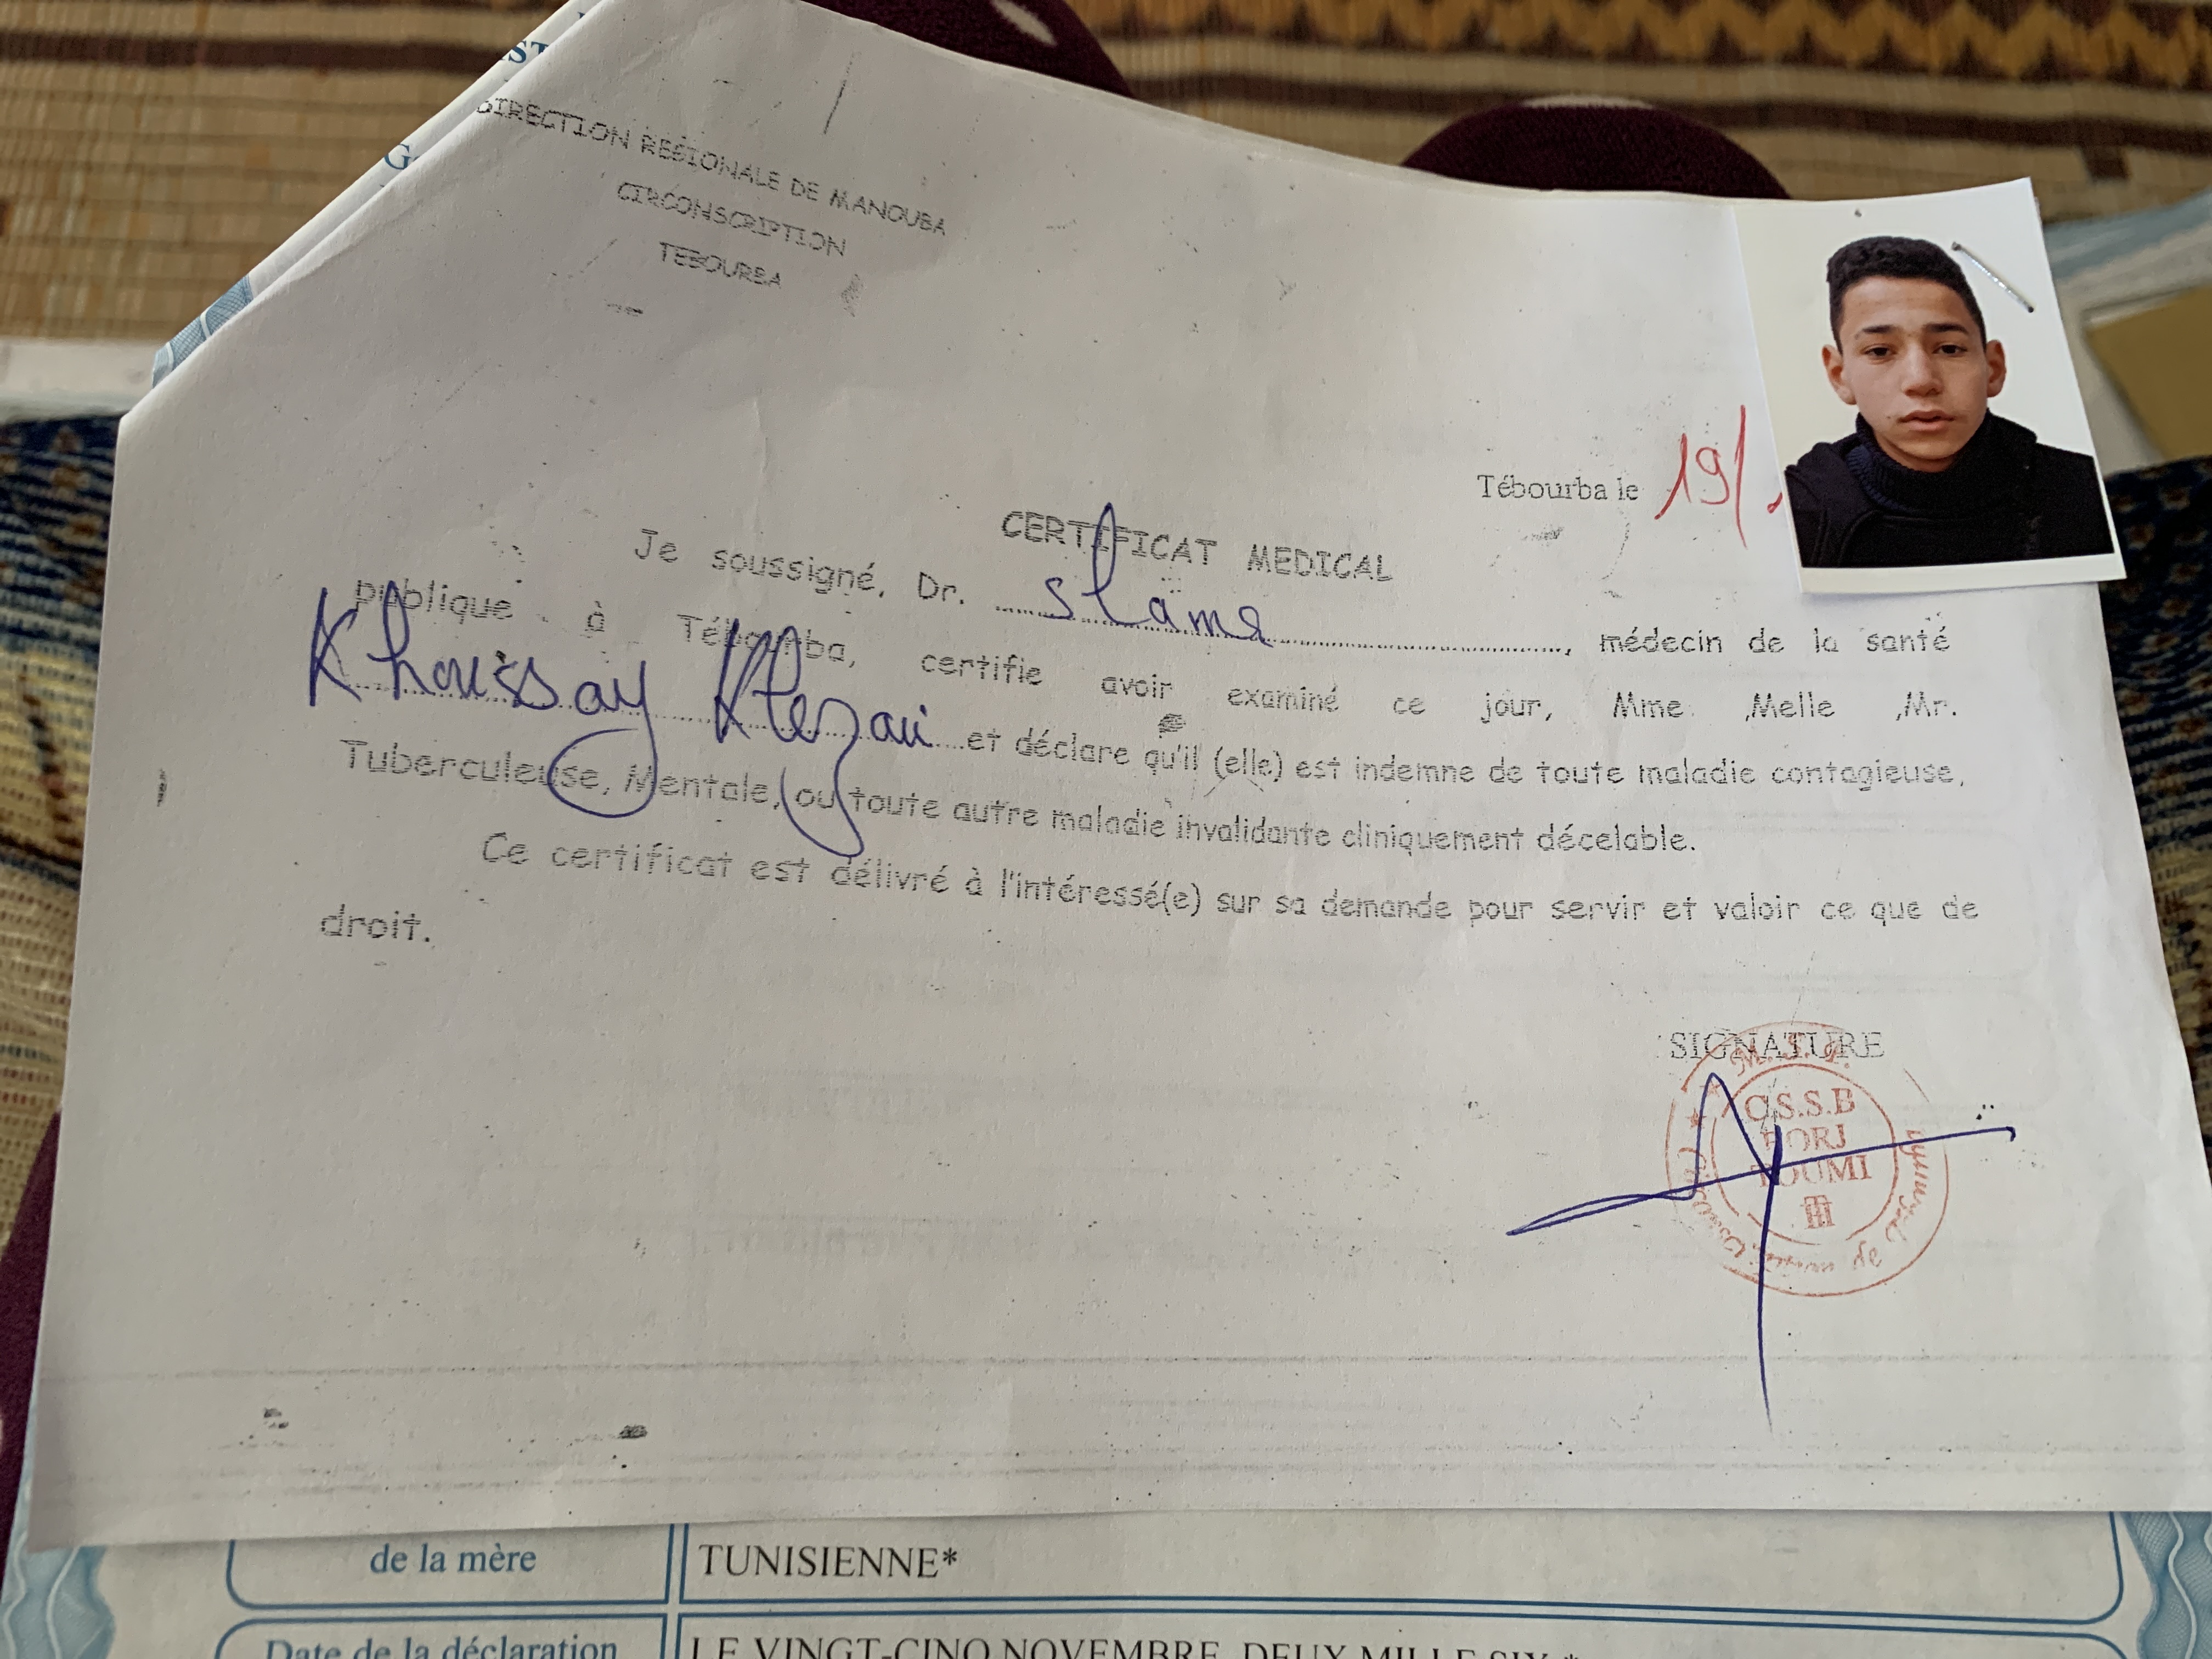 DIRECTION REGIONALE DE MANOUBA
CIRCONSCRIPTION
TEBOURBA
Tébourba le 19/
CERTIFICAT MEDICAL
Je soussigné, Dr. slama, médecin de la santé
publique à Tébourba, certifie avoir examiné ce jour, Mme ,Melle ,Mr.
Khoussay Klezai et déclare qu'il (elle) est indemne de toute maladie contagieuse,
Tuberculeuse, Mentale, ou toute autre maladie invalidante cliniquement décelable.
Ce certificat est délivré à l'intéressé(e) sur sa demande pour servir et valoir ce que de
droit.
SIGNATURE
C.S.S.B
BORJ
TOUMI
de la mère
TUNISIENNE*
Date de la déclaration
LE VINGT-CINQ NOVEMBRE DEUX MILLE SIX *